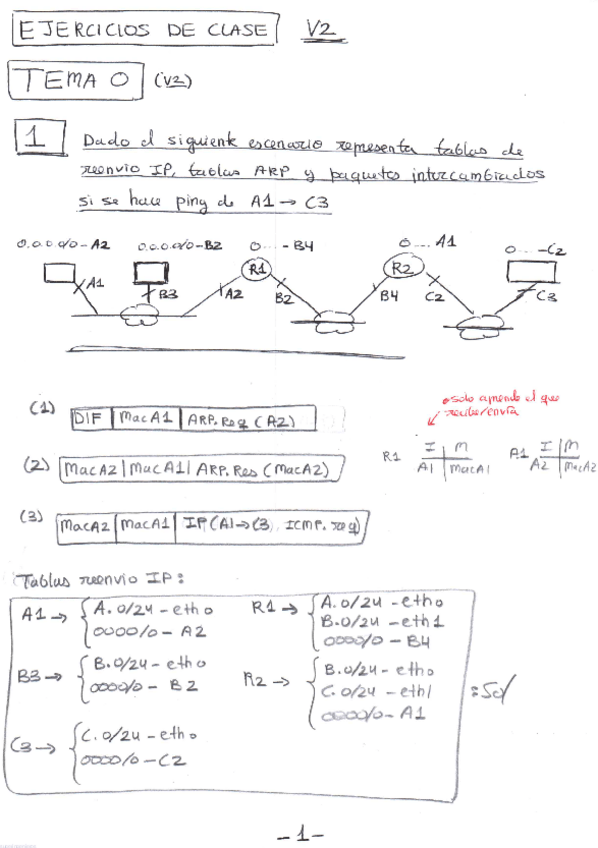 EJERCICIOS DE CLASE V2
TEMA 0 (V2)
1 Dado el siguiente escenario representa tablas de
reenvio IP, tablas ARP y paquetes intercambiados
si se hace ping de A1 → C3
0.0.0.0/0-A2 0.0.0.0/0-B2 0... -B4 0.... A1 0... -C2
R1 R2
A1 B3 A2 B2 B4 C2 C3
•solo aprende el que
recibe/envía
(1) DIF | MacA1 | ARP.Req (A2)
R1 I | M A1 I | M
A1 | MacA1 A2 | MacA2
(2) MacA2 | MacA1 | ARP.Res (MacA2)
(3) MacA2 | MacA1 | IP (A1→C3) ICMP.req)
Tablas reenvio IP:
A1 → { A.0/24 - eth0
0000/0 - A2
R1 → { A.0/24 - eth0
B.0/24 - eth1
0000/0 - B4
B3 → { B.0/24 - eth0
0000/0 - B2
R2 → { B.0/24 - eth0
C.0/24 - eth1
0000/0 - A1
: Sol
C3 → { C.0/24 - eth0
0000/0 - C2
- 1 -